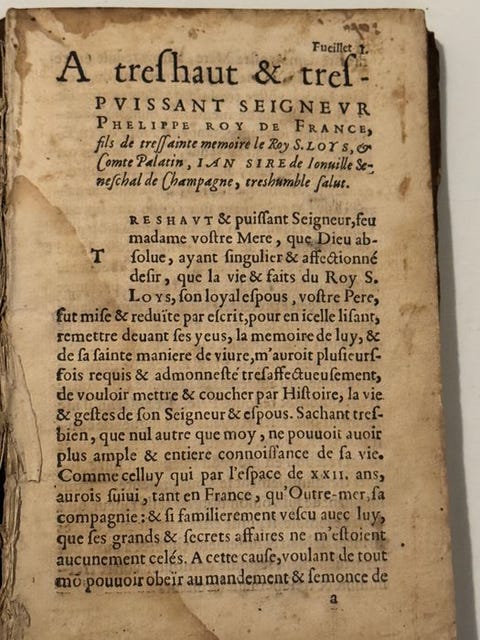 Fueillet 1.
A treſhaut & treſ-
PVISSANT SEIGNEVR
PHELIPPE ROY DE FRANCE,
fils de treſſainte memoire le Roy S. LOYS, &
Comte Palatin, IAN SIRE de Ionuille Se-
neſchal de Champagne, treshumble ſalut.
TRESHAVT & puiſſant Seigneur, feu
madame voſtre Mere, que Dieu ab-
ſolue, ayant ſingulier & affectionné
deſir, que la vie & faits du Roy S.
LOYS, ſon loyal eſpous, voſtre Pere,
fut miſe & reduite par eſcrit, pour en icelle liſant,
remettre deuant ſes yeus, la memoire de luy, &
de ſa ſainte maniere de viure, m'auroit pluſieurs-
fois requis & admonneſté treſaffectueuſement,
de vouloir mettre & coucher par Hiſtoire, la vie
& geſtes de ſon Seigneur & eſpous. Sachant treſ-
bien, que nul autre que moy, ne pouuoit auoir
plus ample & entiere connoiſſance de ſa vie.
Comme celluy qui par l'eſpace de XXII. ans,
aurois ſuiui, tant en France, qu'Outre-mer, ſa
compagnie: & ſi familierement veſcu auec luy,
que ſes grands & ſecrets affaires ne m'eſtoient
aucunement celés. A cette cauſe, voulant de tout
mõ pouuoir obeir au mandement & ſemonce de
a